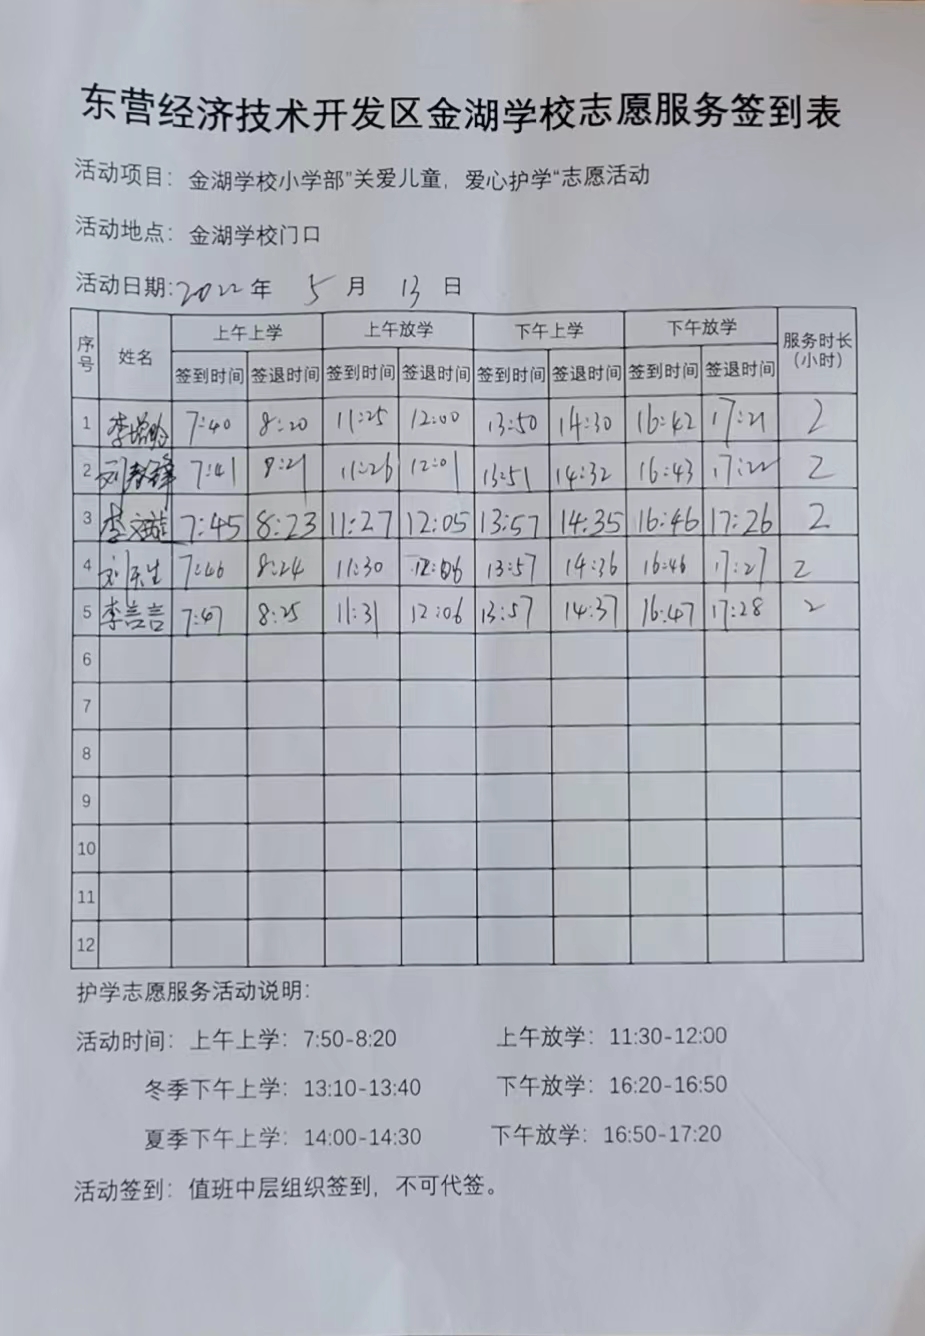 东营经济技术开发区金湖学校志愿服务签到表
活动项目：金湖学校小学部"关爱儿童，爱心护学"志愿活动
活动地点：金湖学校门口
活动日期:2022年 5月 13日
序号 姓名 上午上学 上午放学 下午上学 下午放学 服务时长（小时）
签到时间 签退时间 签到时间 签退时间 签到时间 签退时间 签到时间 签退时间
1 7:40 8:20 11:25 12:00 13:50 14:30 16:42 17:21 2
2 7:41 8:21 11:26 12:01 13:51 14:32 16:43 17:22 2
3 7:45 8:23 11:27 12:05 13:57 14:35 16:46 17:26 2
4 7:46 8:24 11:30 12:06 13:57 14:36 16:46 17:27 2
5 李言言 7:47 8:25 11:31 12:06 13:57 14:37 16:47 17:28 2
6
7
8
9
10
11
12
护学志愿服务活动说明：
活动时间：上午上学：7:50-8:20 上午放学：11:30-12:00
冬季下午上学：13:10-13:40 下午放学：16:20-16:50
夏季下午上学：14:00-14:30 下午放学：16:50-17:20
活动签到：值班中层组织签到，不可代签。